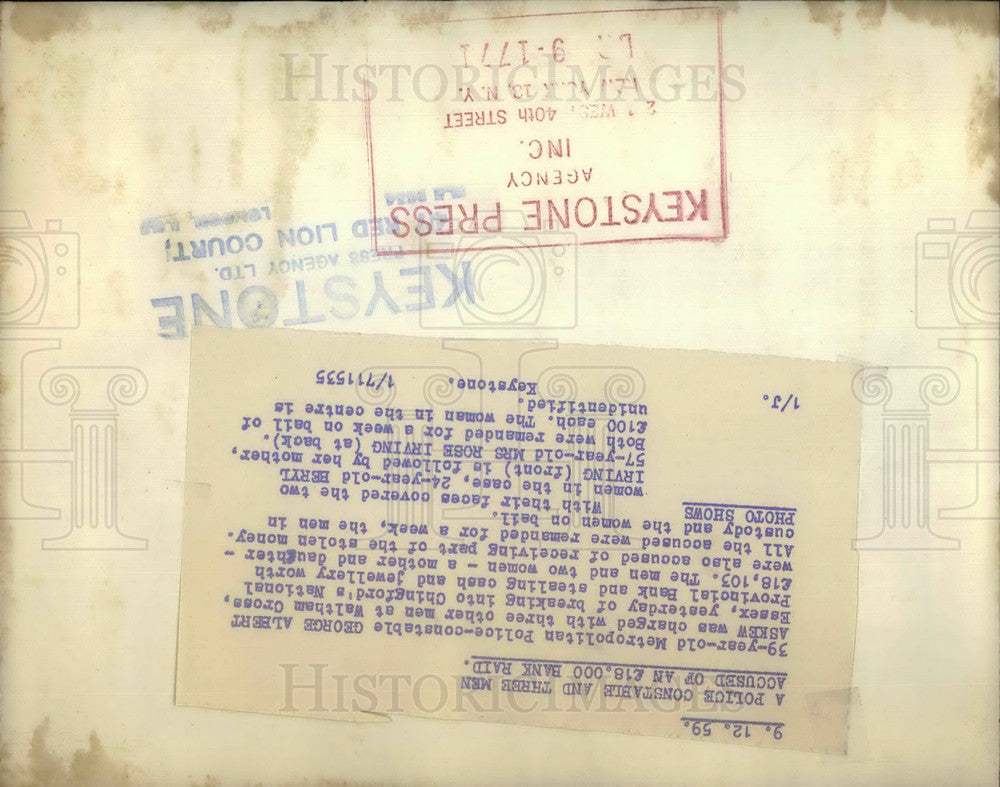 9. 12. 59.
A POLICE CONSTABLE AND THREE MEN
ACCUSED OF AN £18,000 BANK RAID.
39-year-old Metropolitan Police-constable GEORGE ALBERT
ASKEW was charged with three other men at Waltham Cross,
Essex, yesterday of breaking into Chingford's National
Provincial Bank and stealing cash and jewellery worth
£18,103. The men and two women - a mother and daughter -
were also accused of receiving part of the stolen money.
All the accused were remanded for a week, the men in
custody and the women on bail.
PHOTO SHOWS
With their faces covered the two
women in the case, 24-year-old BERYL
IRVING (front) is followed by her mother,
57-year-old MRS ROSE IRVING (at back).
Both were remanded for a week on bail of
£100 each. The woman in the centre is
unidentified.
1/J. Keystone. 1/711535
KEYSTONE
PRESS AGENCY LTD.
RED LION COURT,
LONDON,
KEYSTONE PRESS
AGENCY
INC.
WEST 40th STREET
N.Y.
9-1771
HISTORIC IMAGES
HISTORIC IMAGES